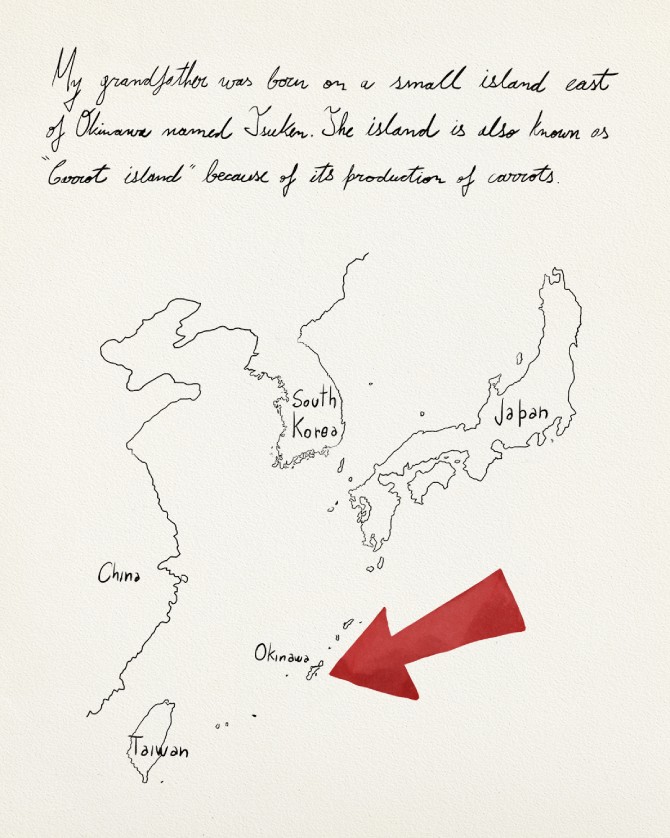 My grandfather was born on a small island east
of Okinawa named Tsuken. The island is also known as
"Carrot island" because of its production of carrots.
South
Korea
Japan
China
Okinawa
Taiwan